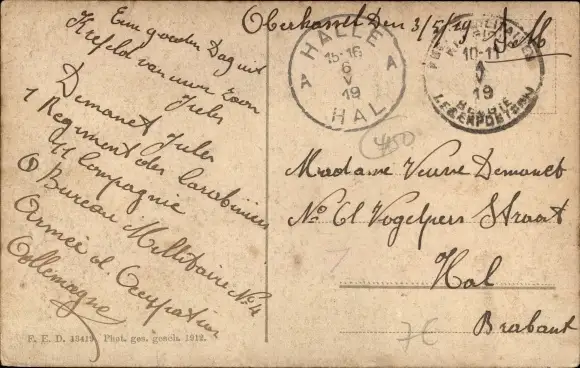 Een goeden Dag uit
Krefeld van uwen Zoon
Jules
Demanet Jules
1 Regiment des Carabiniers
11 Compagnie
Bureau Millitaire No 4
Armée d Occupation
Allemagne
F. E. D. 13419 Phot. ges. gesch. 1912.
Oberkassel Den 3/5/19
HALLE
15-16
6
V
19
HAL
A A
10-11
19
BELGIE
LEGERPOSTERIJ
400
Madame Veuve Demanet
No 61 Vogelpers Straat
Hal
Brabant
7C